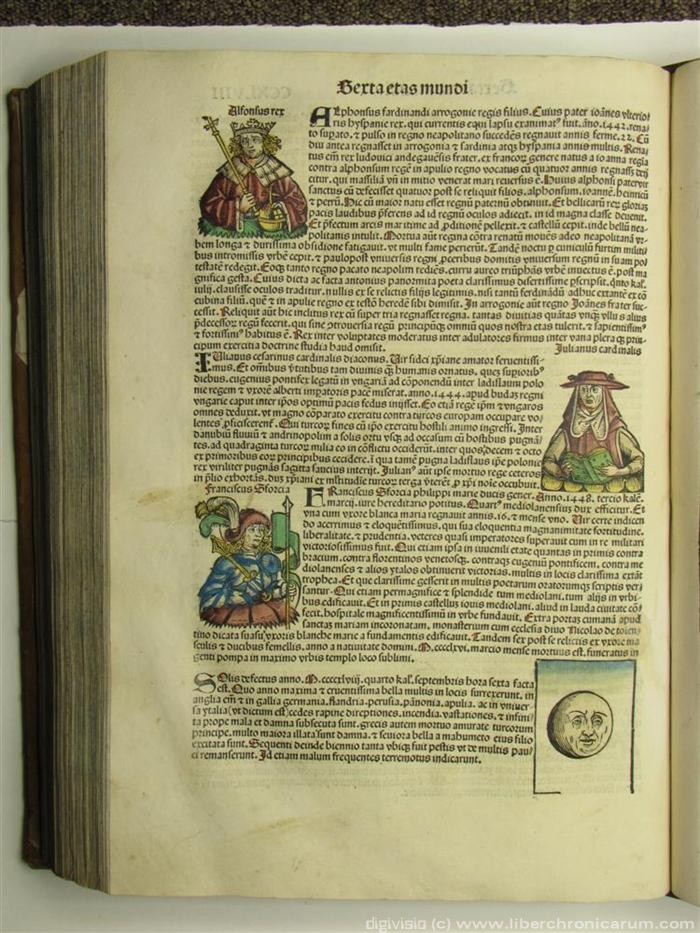 Sexta etas mundi
Alfonsus rex
Alphonsus fardinandi arrogonie regis filius. Cuius pater ioānes vlterio
ris hyspanie rex. qui currentis equi lapsu exanimatꝰ fuit. āno. 1442. rena
to fugato. ⁊ pulso in regno neapolitano succedēs regnauit annis ferme. 22. Cū
diu antea regnasset in arrogonia ⁊ sardinia atqꝫ hyspania annis multis. Rena
tus em̄ rex ludouici andegauēsis frater. ex francoꝝ genere natus a ioanna regia
contra alphonsum regē in apulie regno vocatus cū quatuor annis regnasset
citur. qui massiliā vn̄ in initio venerat mari reuersus ē. Huius alphonsi pater
sanctus cū defecisset quatuor post se reliquit filios. alphonsum. ioannē. heinricū
⁊ petrū. Hic cū maior natu esset regnū paternū obtinuit. Et bellicarū reꝝ gloriā
pacis laudibus p̄ferens ad id regnū oculos adiecit. in id magna classe deuenit.
Et p̄fectum arcis maritime ad p̄ditionē pellexit. ⁊ castellū cepit. inde bellū nea
politanis intulit. Mortua aūt regina cōtra renatū mouēs adeo neapolitanā vr
bem longa ⁊ durissima obsidione fatigauit. vt multi fame perierūt. Tandē noctu ꝑ cuniculū furtim militi
bus intromissis vrbē cepit. ⁊ paulopost vniuersis regni ꝓceribus domitis vniuersum regnū in suam po
testatē redegit. Eoqꝫ tanto regno pacato neapolim rediēs. curru aureo triūphās vrbē inuectus ē. post ma
gnifica gesta. Cuius dicta ac facta antonius panormita poeta clarissimus disertissime p̄scripsit. q̄nto kal.
iulij. clausisse oculos traditur. nullis ex se relictis filijs legitimis. nisi tantū ferdinādū adhuc extantē ex cō
cubina filiū. quē ⁊ in apulie regno ex testō heredē sibi dimisit. In arrogonie aūt regno Joānes frater suc
cessit. Reliquit aūt hic inclitus rex cū super tria regnasset regna. tantas diuitias quātas vnqꝫ vllus alius
p̄decessoꝝ regū fecerit. qui sine ꝯtrouersia regū principūqꝫ omniū quos nostra etas tulerit. ⁊ sapientissimꝰ
⁊ fortissimꝰ habitus ē. Rex inter voluptates moderatus inter adulatores firmus inter vana pleraqꝫ prin
cipum exercitia doctrine studia haud omisit.
Julianus cardinalis
Julianus cesarinus cardinalis diaconus. Vir fidei xp̄iane amator feruentissi
mus. Et omībus v̓tutibus tam diuinis qꝫ humanis ornatus. quē superiorib̓
diebus. eugenius pontifex legatū in vngariā ad cōponendū inter ladislaum polo
nie regem ⁊ vxorē alberti imꝑatoris pacē miserat. anno. 1444. apud budaꝫ regni
vngarie caput inter ip̄os optimū pacis fedus inijsset. Eo etiā regē ip̄m ⁊ vngaros
omnes deduxit. vt magno cōparato exercitu contra turcos europam occupare vo
lentes ꝓficiscerent̄. Qui turcoꝝ fines cū ip̄o exercitu hostili animo ingressi. Inter
danubiū fluuiū ⁊ andrinopolim a solis ortu vsqꝫ ad occasum cū hostibus pugnā
tes. ad quadraginta turcoꝝ milia eo in cōflictu occiderūt. inter quos decem ⁊ octo
ex primoribus eoꝝ principibus cecidere. ī qua tamē pugna ladislaus ip̄e polonie
rex viriliter pugnās sagitta saucius interijt. Julianꝰ aūt ipse mortuo rege ceteros
in p̄lio exhortās. dux xp̄iani ex multitudīe turcoꝝ terga v̓terēt ꝓ xp̄i noīe occubuit.
Franciscus Sforcia
Franciscus Sforcia philippi marie ducis gener. Anno. 1448. tercio kalē.
marcij. iure hereditario potitus. Quartꝰ mediolanensiū dux efficitur. Et
vna cum vxore blanca maria regnauit annis. 16. ⁊ mense vno. Vir certe indicen
do acerrimus ⁊ eloquētissimus. qui sua eloquentia magnanimitate fortitudine.
liberalitate. ⁊ prudentia. veteres quasi imperatores superauit cum in re militari
victoriosissimus fuit. Qui etiam ipsa in iuuenili etate quantas in primis contra
bractum. contra florentinos venetosqꝫ. contraqꝫ eugeniū pontificem. contra me
diolanenses ⁊ alios ytalos obtinuerit victorias. multis in locis clarissima extāt
trophea. Et que clarissime gesserit in multis poetarum oratorumqꝫ scriptis ver
santur. Qui etiam permagnifice ⁊ splendide tum mediolani. tum alijs in vrbi
bus edificauit. Et in primis castellum iouis mediolani. aliud in lauda ciuitate cō
fecit. hospitale magnificentissimū in vrbe fundauit. Extra portā cumanā apud
sanctaꝫ mariam incoronatam. monasterium cum ecclesia diuo Nicolao de tolen
tino dicata suasu vxoris blanche marie a fundamentis edificauit. Tandem sex post se relictis ex vxore ma
sculis ⁊ ducibus femellis. anno a natiuitate domini. M.cccclxvi. marcio mense mortuus est. funeratus in
genti pompa in maximo vrbis templo loco sublimi.
Solis defectus anno. M.ccccxlviij. quarto kal. septembris hora sexta facta
est. Quo anno maxima ⁊ cruentissima bella multis in locis surrexerunt. in
anglia em̄ ⁊ in gallia germania. flandria. perusia. pānonia. apulia. ac in vniuer
sa ytalia (vt dictum est) cedes rapine direptiones. incendia. vastationes. ⁊ infini
ta prope mala et damna subsecuta sunt. grecis autem mortuo amurate turcorum
principe. multo maiora illata sunt damna. ⁊ seuiora bella a mahumeto eius filio
excitata sunt. Sequenti deinde biennio tanta vbiqꝫ fuit pestis vt de multis pau
ci remanserunt. Id etiam malum frequentes terremotus indicarunt.
digivisio (c) www.liberchronicarum.com